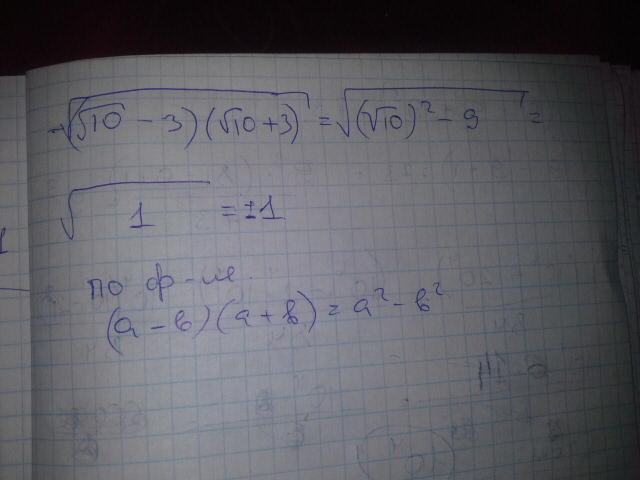 √((√10 - 3)(√10 + 3)) = √((√10)² - 9) =
√1 = ±1
по ф-ле.
(a - в)(a + в) = a² - в²